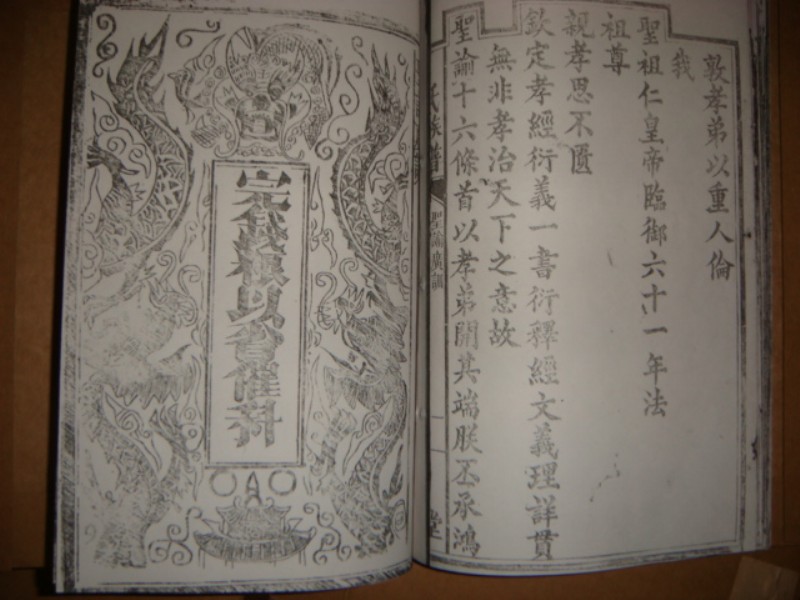 敦孝弟以重人倫
我
聖祖仁皇帝臨御六十一年法
祖尊
親孝思不匱
欽定孝經衍義一書衍釋經文義理詳貫
無非孝治天下之意故
聖諭十六條首以孝弟開其端朕丕承鴻
氏族譜
聖諭廣訓
堂
完錢糧以省催科